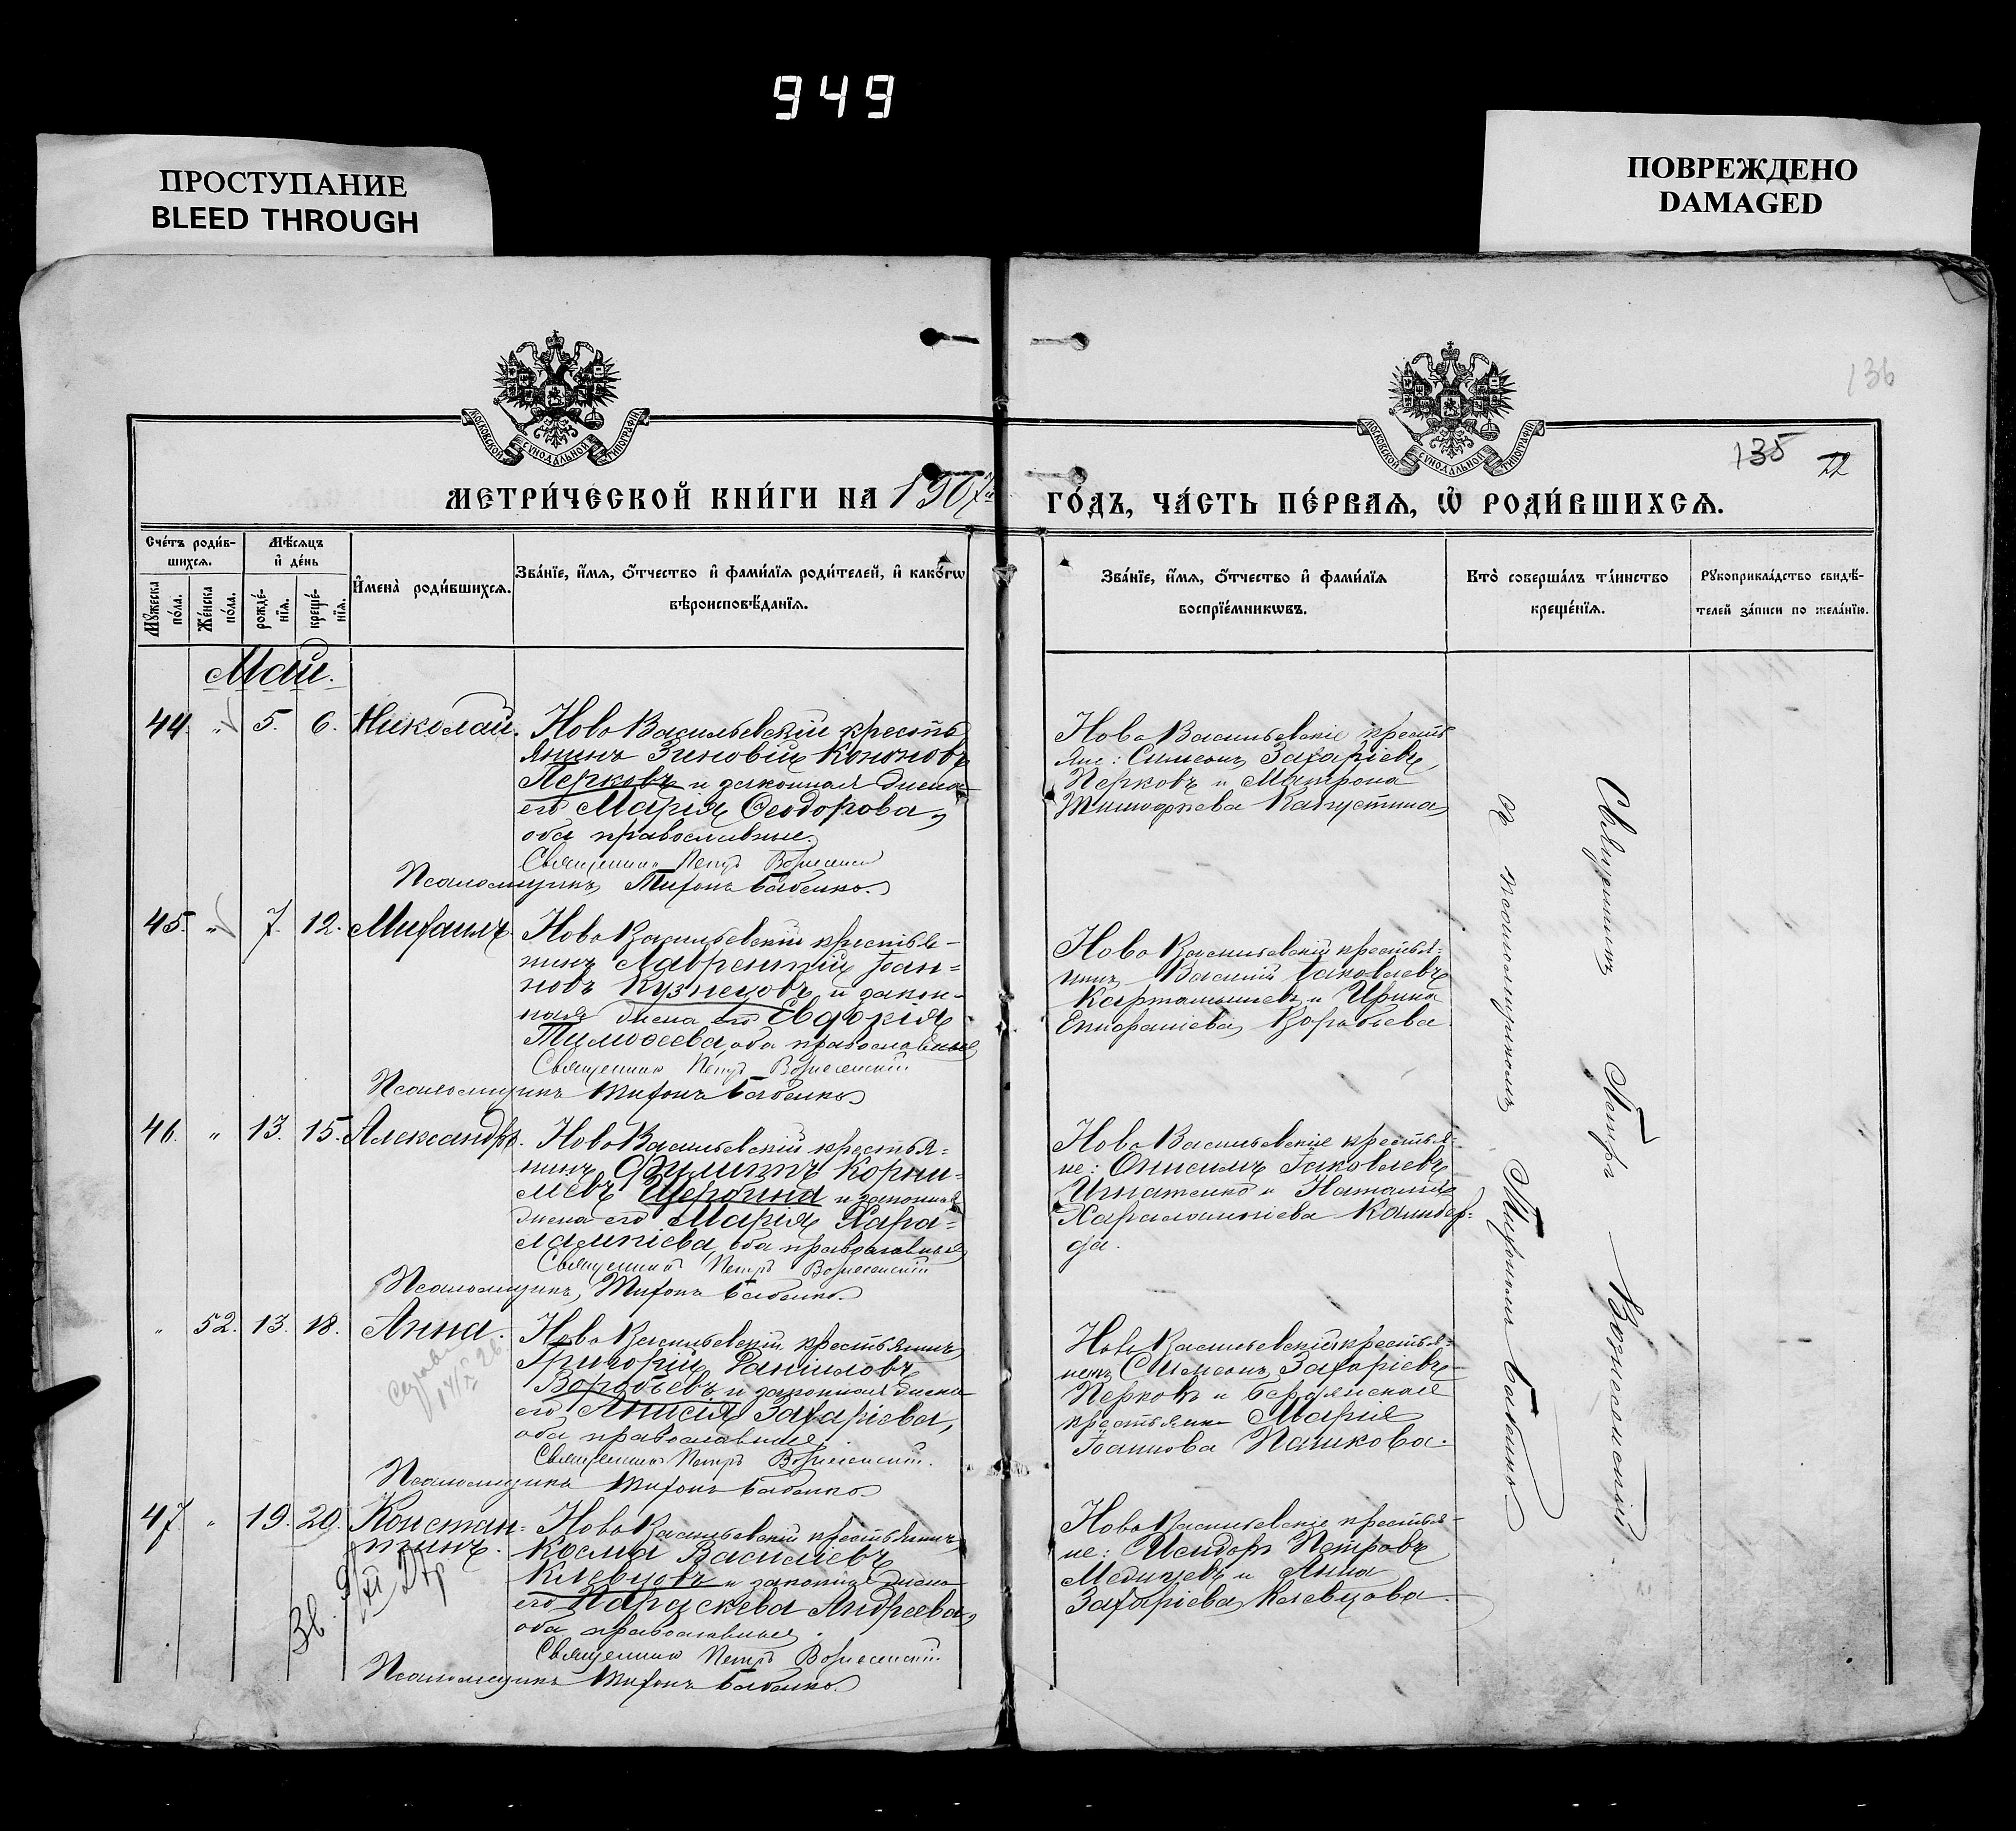 949
ПРОСТУПАНИЕ
BLEED THROUGH
ПОВРЕЖДЕНО
DAMAGED
136
135
22
МОСКОВСКОЙ СѴНОДАЛЬНОЙ ТИПОГРАФІИ
МОСКОВСКОЙ СѴНОДАЛЬНОЙ ТИПОГРАФІИ
МЕТРИ́ЧЕСКОЙ КНИ́ГИ НА 1907й
ГО́ДЪ, ЧА́СТЬ ПЕ́РВАѦ, Ѽ РОДИ́ВШИХСѦ.
Сче́тъ роди́в-
шихсѧ.
Мѣ́сѧцъ
и҆ де́нь
Мꙋ́жеска по́ла.
Же́нска по́ла.
рожде́-
нїѧ.
креще́-
нїѧ.
И҆мена̀ роди́вшихсѧ.
Зва́нїе, и҆́мѧ, ѻ҆́тчество и҆ фами́лїѧ роди́телей, и҆ како́гѡ
вѣроисповѣ́данїѧ.
Зва́нїе, и҆́мѧ, ѻ҆́тчество и҆ фами́лїѧ
воспрїе́мникѡвъ.
Кто̀ соверша́лъ та́инство
креще́нїѧ.
Рꙋкоприкла́дство свидѣ́-
телей за́писи по жела́нїю.
Май.
44. " 5. 6. Николай. Ново Васильевскій кресть
янинъ Зиновій Кононовъ
Перковъ и законная жена
его Марія Ѳеодорова,
оба православные.
Священникъ Петръ Вознесенскій
Псаломщикъ Тихонъ Бабенко.
Ново Васильевскіе кресть
яне: Симеонъ Захаріевъ
Перковъ и Матрона
Тимофеева Капустина
45. " 7. 12. Михаилъ. Ново Васильевскій крестья-
нинъ Лаврентій Іоан-
новъ Кузнецовъ и закон-
ная жена его Евдокія
Тимоѳеева, оба православные
Священникъ Петръ Вознесенскій
Псаломщикъ Тихонъ Бабенко
Ново Васильевскій крестья-
нинъ Василій Іаковлевъ
и Ирина
Епифаніева Воробьева
46. " 13. 15. Александръ. Ново Васильевскій крестья-
нинъ Филиппъ Корни-
ліевъ Щербина и законная
жена его Марія Хара-
лампіева, оба православные
Священникъ Петръ Вознесенскій
Псаломщикъ Тихонъ Бабенко.
Ново Васильевскіе крестья-
не: Онисимъ Іаковлевъ
Игнатенко и Наталія
Харалампіева
да.
" 52. 13. 18. Анна. Ново Васильевскій крестьянинъ
Григорій Даніиловъ
Воробьевъ и законная жена
его Анисія Захаріева,
оба православные.
Священникъ Петръ Вознесенскій.
Псаломщикъ Тихонъ Бабенко
Ново Васильевскій крестья-
нинъ Симеонъ Захаріевъ
Перковъ и Бердянская
крестьянка Марія
Іоаннова Пашкова.
47. " 19. 20. Констан-
тинъ.
Ново Васильевскій крестьянинъ
Косма Василіевъ
Клевцовъ и законная жена
его Параскева Андреева,
оба православные.
Священникъ Петръ Вознесенскій
Псаломщикъ Тихонъ Бабенко.
Ново Васильевскіе крестья-
не: Исидоръ Петровъ
и Анна
Захаріева Клевцова.
Священникъ Петръ Вознесенскій.
съ псаломщикомъ Тихономъ Бабенко